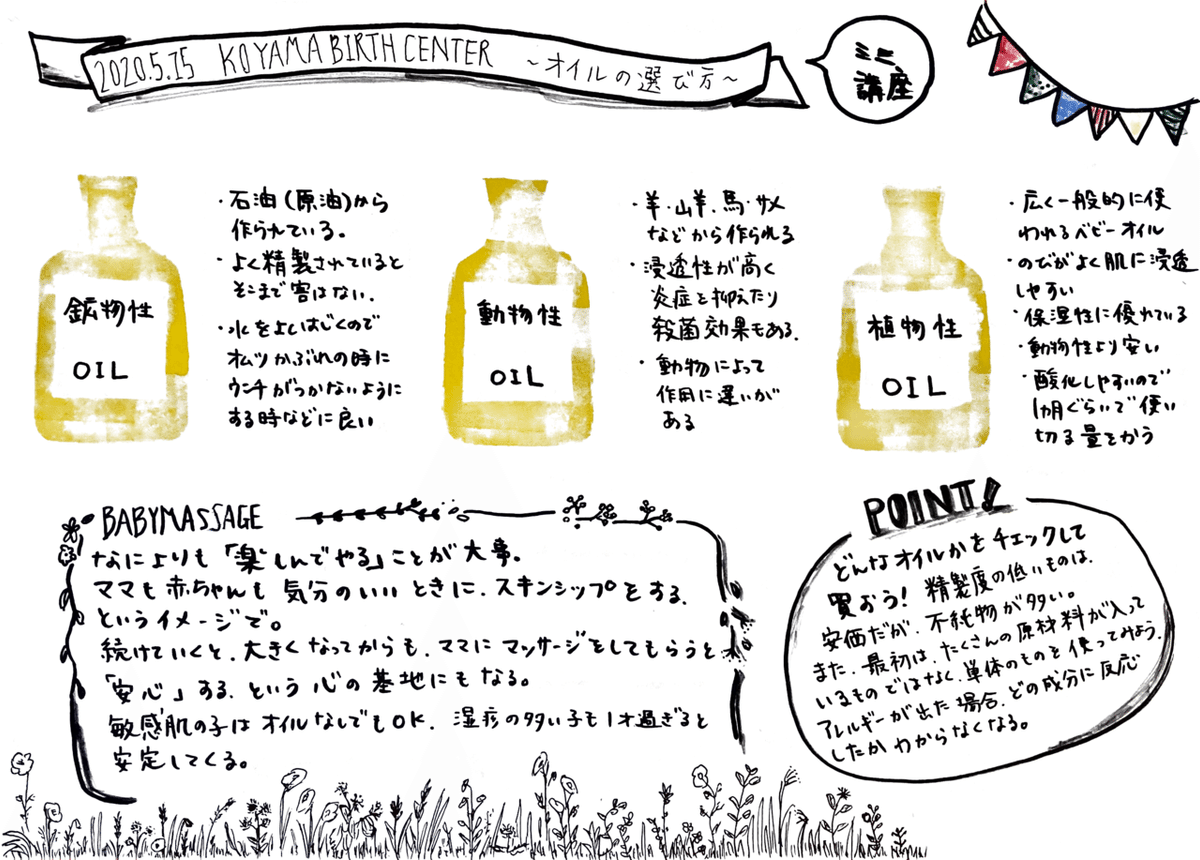 2020.5.15 KOYAMA BIRTH CENTER ~オイルの選び方~
ミニ
講座
鉱物性
OIL
・石油(原油)から
作られている。
・よく精製されていると
そこまで害はない.
・水をよくはじくので
オムツかぶれの時に
ウンチがつかないように
する時などに良い
動物性
OIL
・羊.山羊.馬.サメ
などから作られる
・浸透性が高く
炎症を抑えたり
殺菌効果もある.
・動物によって
作用に違いが
ある
植物性
OIL
・広く一般的に使
われるベビーオイル
・のびがよく肌に浸透
しやすい
・保湿性に優れている
・動物性より安い
・酸化しやすいので
1カ月ぐらいで使い
切る量をかう
BABYMASSAGE
なによりも「楽しんでやる」ことが大事。
ママも赤ちゃんも気分のいいときに.スキンシップをする.
というイメージで。
続けていくと.大きくなってからも.ママにマッサージをしてもらうと
「安心」する.という心の基地にもなる。
敏感肌の子はオイルなしでもOK. 湿疹の多い子も1才過ぎると
安定してくる。
POINT!
どんなオイルかをチェックして
買おう! 精製度の低いものは.
安価だが.不純物が多い。
また.最初は.たくさんの原材料が入って
いるものではなく.単体のものを使ってみよう.
アレルギーが出た場合.どの成分に反応
したかわからなくなる。